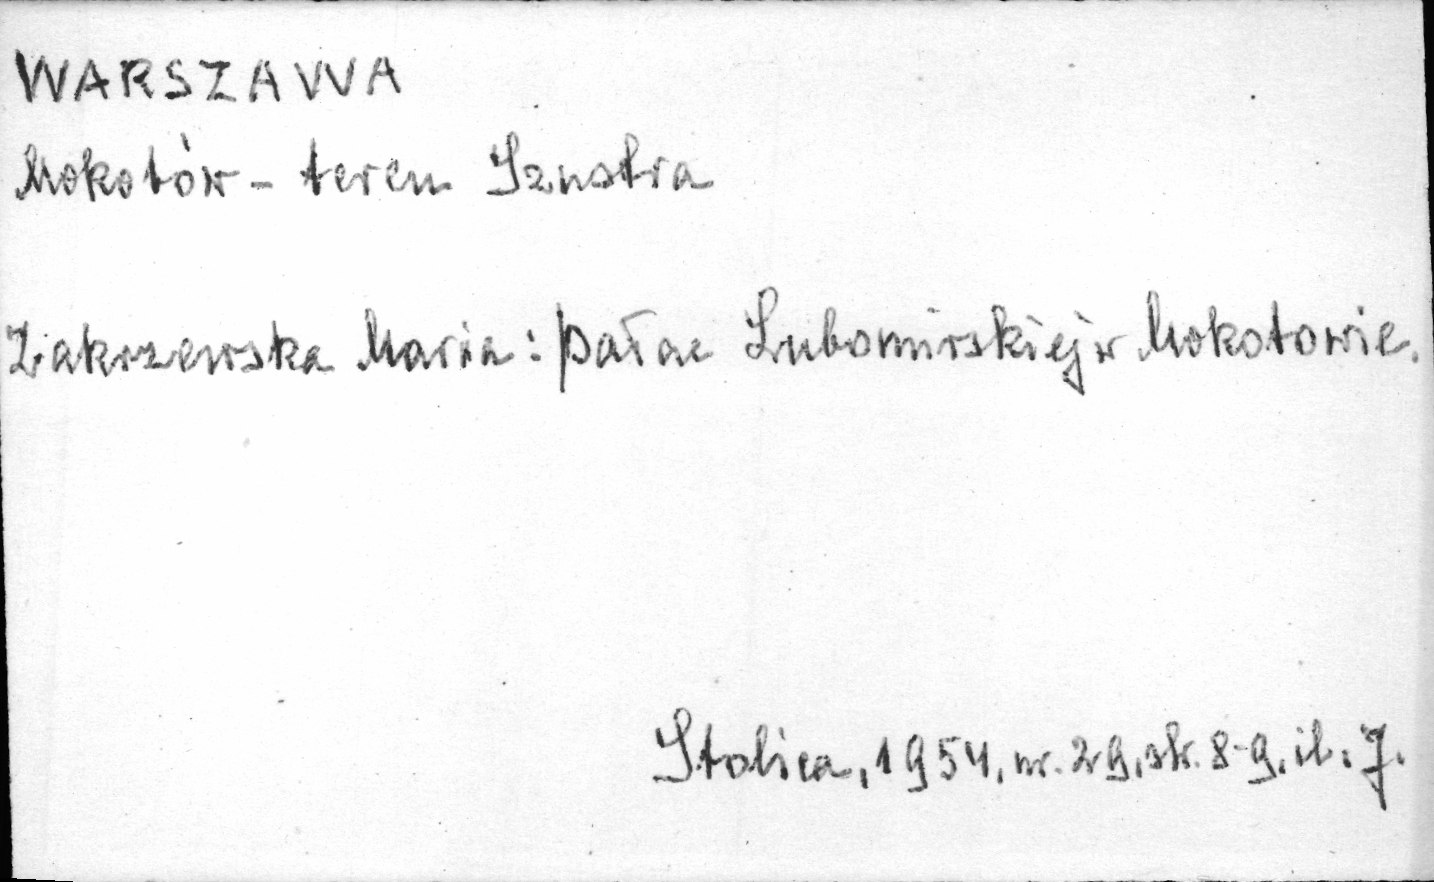 WARSZAWA
Mokotów - teren Szustra
Zakrzewska Maria: pałac Lubomirskiej w Mokotowie.
Stolica, 1954, nr. 29, str. 8-9, il. 7.